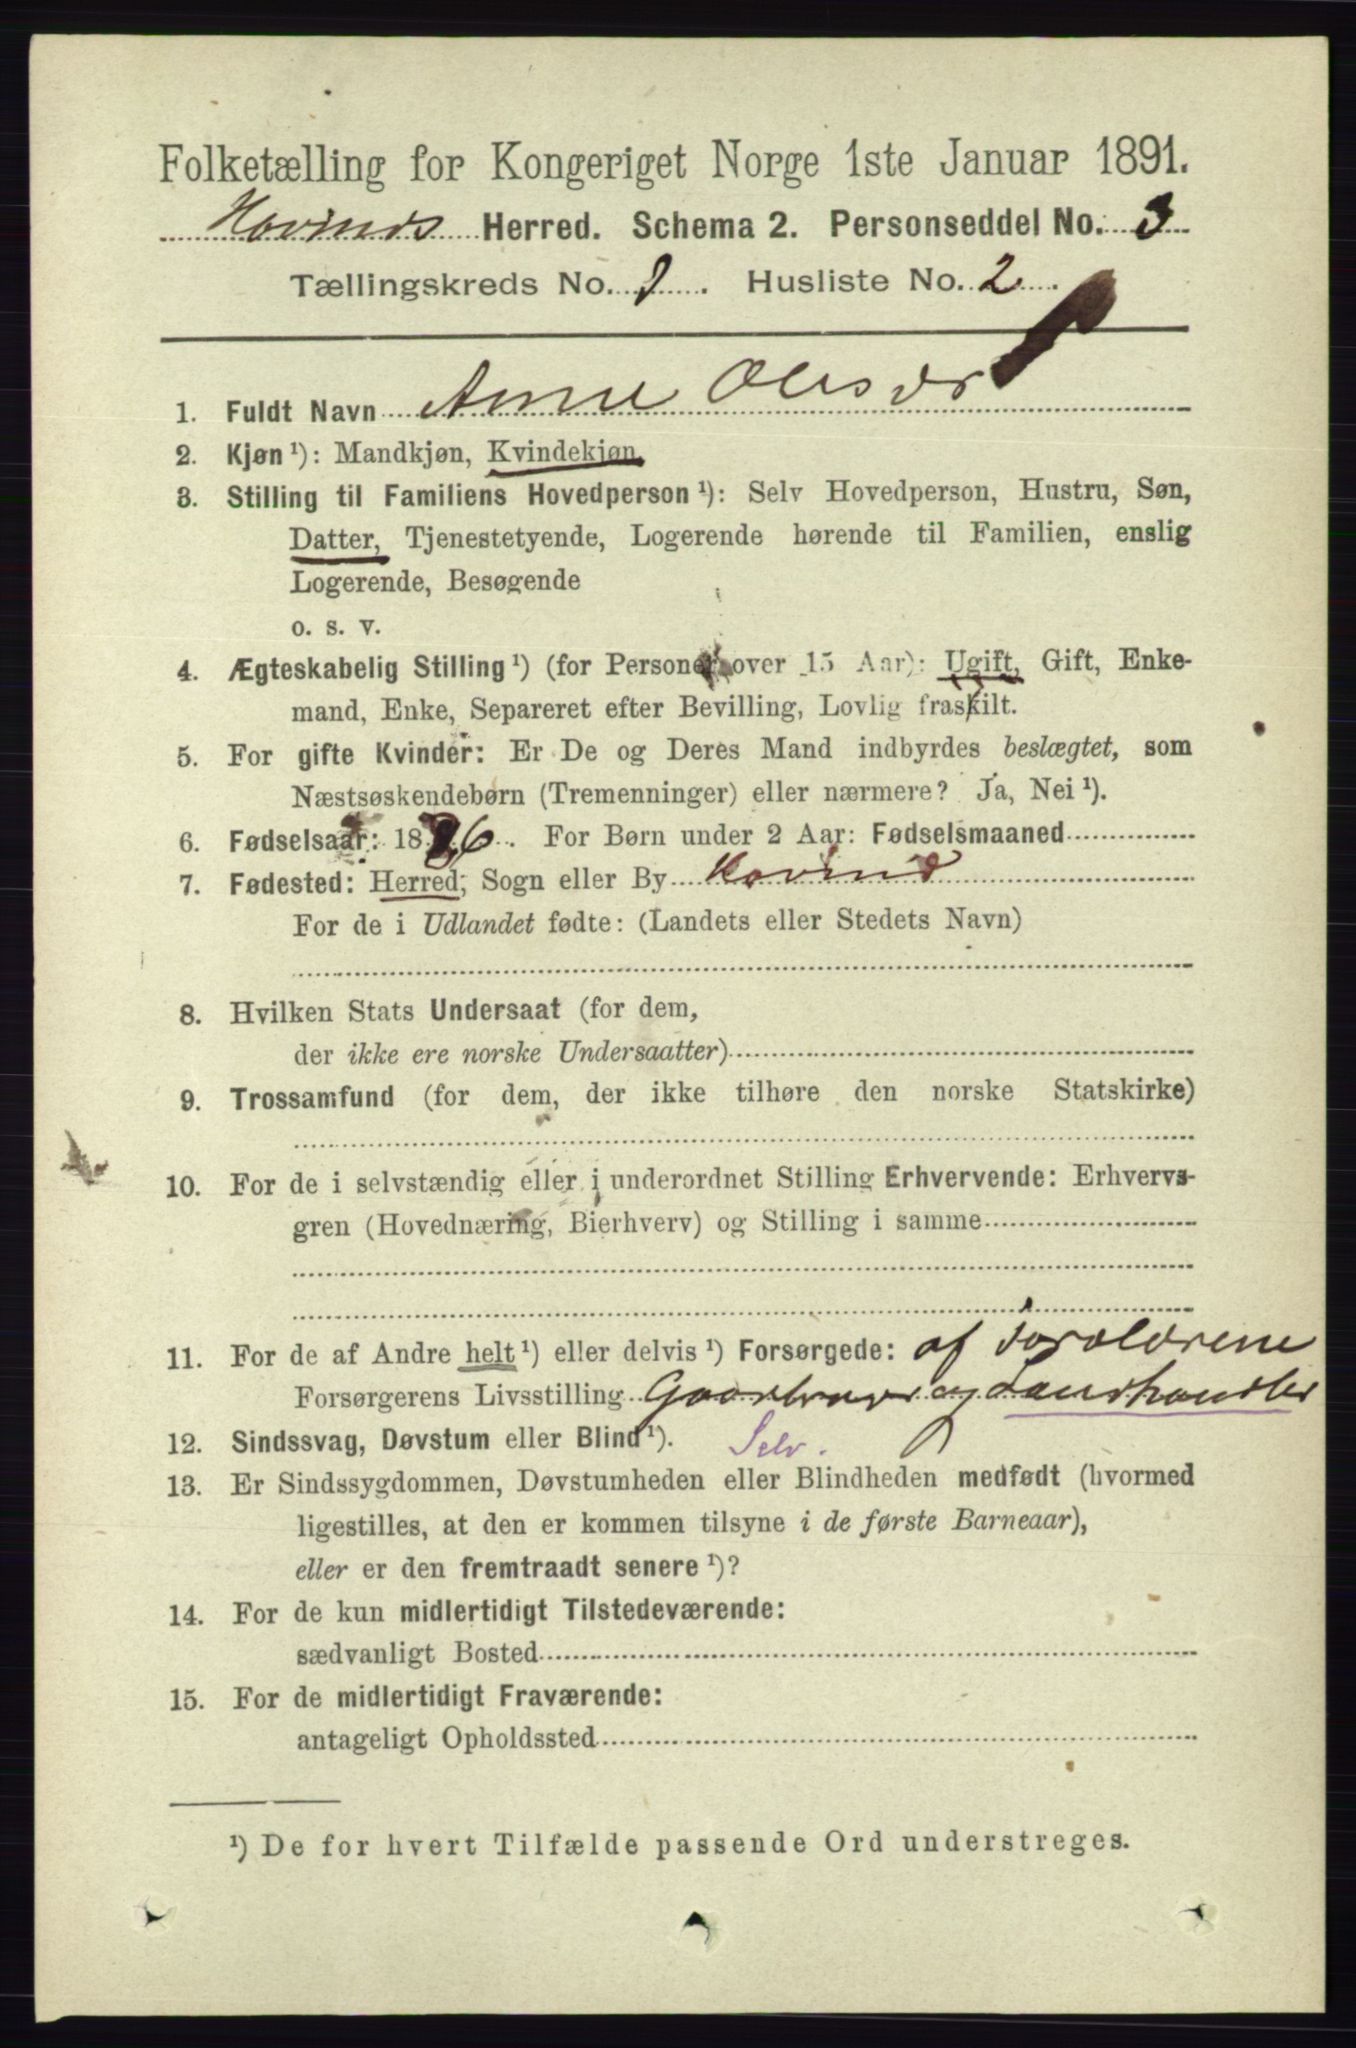 Folketælling for Kongeriget Norge 1ste Januar 1891.
Hovinds Herred. Schema 2. Personseddel No. 3
Tællingskreds No. 1. Husliste No. 2.
1. Fuldt Navn Anne Olesdr
2. Kjøn ¹): Mandkjøn, Kvindekjøn
3. Stilling til Familiens Hovedperson ¹): Selv Hovedperson, Hustru, Søn,
Datter, Tjenestetyende, Logerende hørende til Familien, enslig
Logerende, Besøgende
o. s. v.
4. Ægteskabelig Stilling ¹) (for Personer over 15 Aar): Ugift, Gift, Enke-
mand, Enke, Separeret efter Bevilling, Lovlig fraskilt.
5. For gifte Kvinder: Er De og Deres Mand indbyrdes beslægtet, som
Næstsøskendebørn (Tremenninger) eller nærmere? Ja, Nei ¹).
6. Fødselsaar: 1886. For Børn under 2 Aar: Fødselsmaaned
7. Fødested: Herred, Sogn eller By Hovind
For de i Udlandet fødte: (Landets eller Stedets Navn)
8. Hvilken Stats Undersaat (for dem,
der ikke ere norske Undersaatter)
9. Trossamfund (for dem, der ikke tilhøre den norske Statskirke)
10. For de i selvstændig eller i underordnet Stilling Erhvervende: Erhvervs-
gren (Hovednæring, Bierhverv) og Stilling i samme
11. For de af Andre helt ¹) eller delvis ¹) Forsørgede: af Forældrene
Forsørgerens Livsstilling Gaardbruger og Landhandler
12. Sindssvag, Døvstum eller Blind ¹). Selv.
13. Er Sindssygdommen, Døvstumheden eller Blindheden medfødt (hvormed
ligestilles, at den er kommen tilsyne i de første Barneaar),
eller er den fremtraadt senere ¹)?
14. For de kun midlertidigt Tilstedeværende:
sædvanligt Bosted
15. For de midlertidigt Fraværende:
antageligt Opholdssted
¹) De for hvert Tilfælde passende Ord understreges.